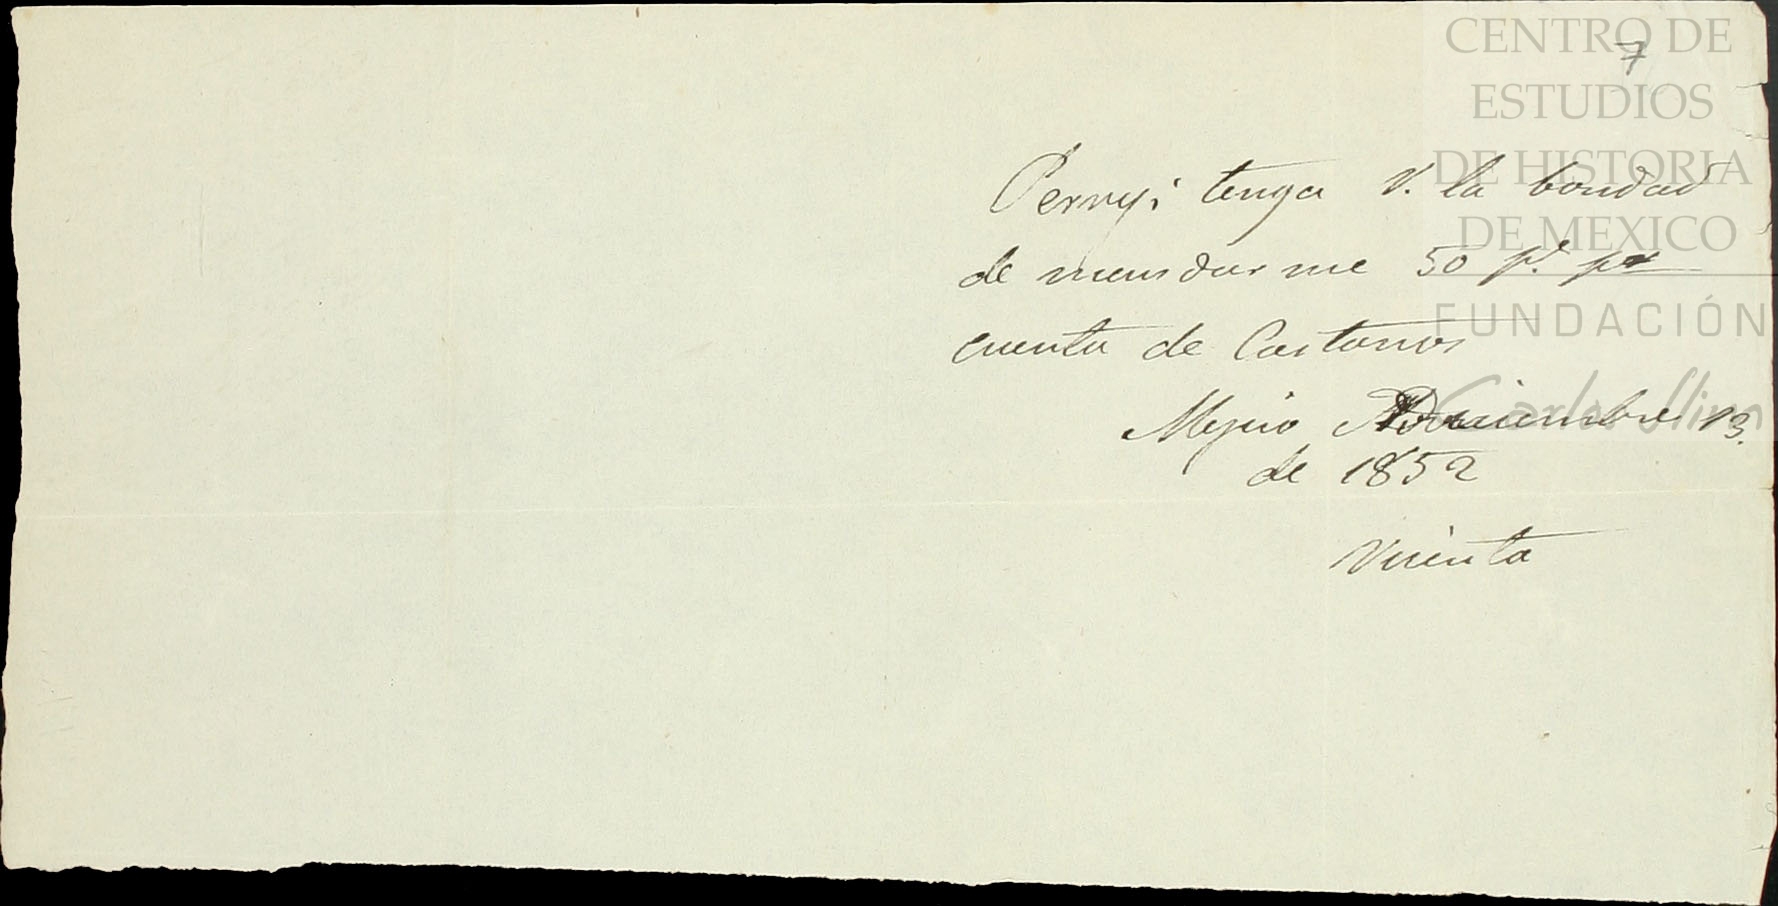 CENTRO DE
7
ESTUDIOS
DE HISTORIA
DE MEXICO
FUNDACIÓN
Carlos Slim
tenga V. la bondad
de mandarme 50 p.s pr
cuenta de Castaños
Mejico Diciembre 13.
de 1852
Vicenta